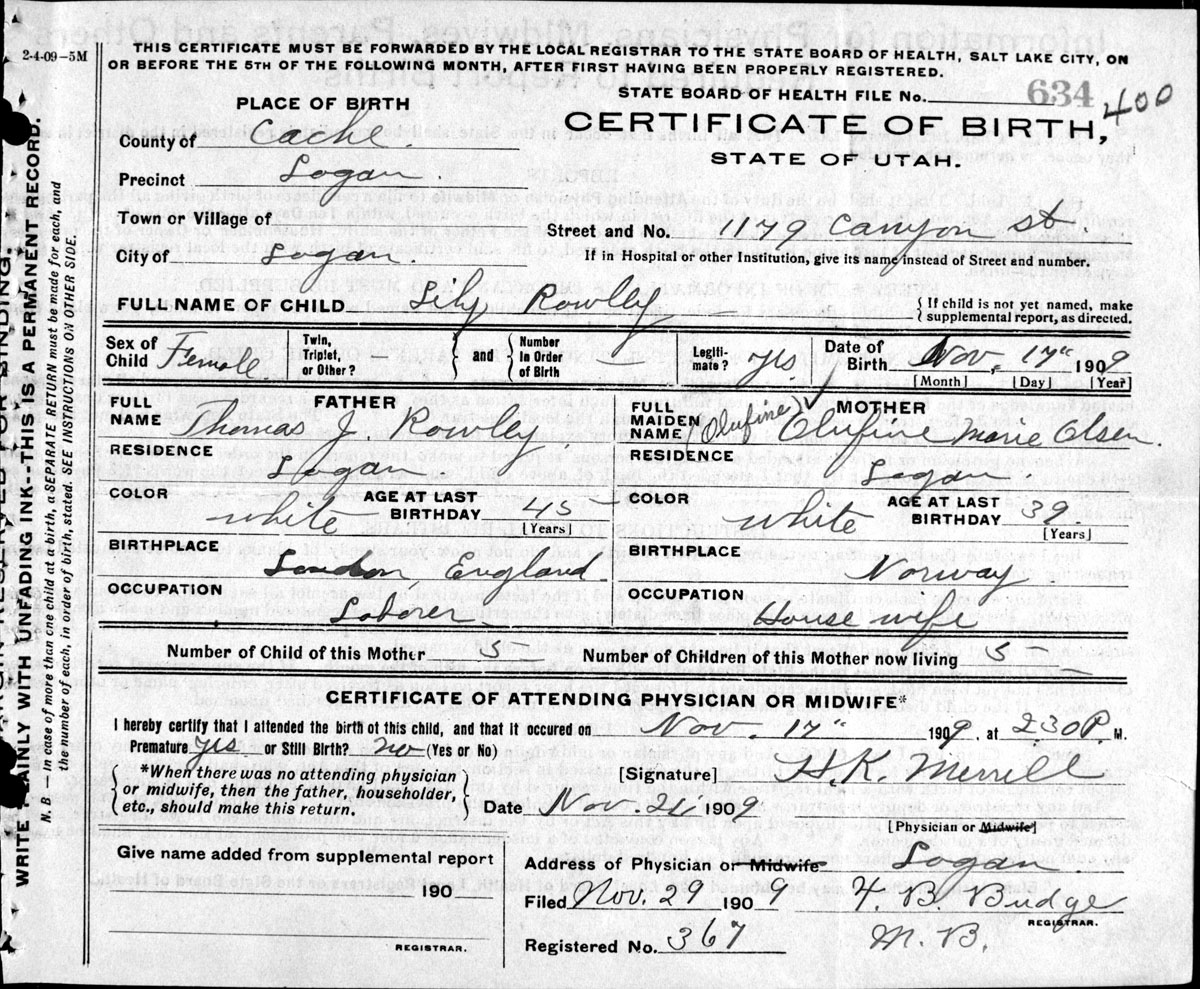 2-4-09-5M
THIS CERTIFICATE MUST BE FORWARDED BY THE LOCAL REGISTRAR TO THE STATE BOARD OF HEALTH, SALT LAKE CITY, ON
OR BEFORE THE 5TH OF THE FOLLOWING MONTH, AFTER FIRST HAVING BEEN PROPERLY REGISTERED.
STATE BOARD OF HEALTH FILE No. 634 400
PLACE OF BIRTH
CERTIFICATE OF BIRTH,
STATE OF UTAH.
County of Cache.
Precinct Logan
Town or Village of
Street and No. 1179 Canyon st.
City of Logan.
If in Hospital or other Institution, give its name instead of Street and number.
FULL NAME OF CHILD Lily Rowley
{If child is not yet named, make supplemental report, as directed.
Sex of Child Female. Twin, Triplet, or Other? } and { Number in Order of Birth Legiti-mate? yes. Date of Birth Nov, 17" 1909
[Month] [Day] [Year]
FATHER
FULL NAME Thomas J. Rowley
RESIDENCE Logan
COLOR white AGE AT LAST BIRTHDAY 45 [Years]
BIRTHPLACE London, England
OCCUPATION Laborer
MOTHER
FULL MAIDEN NAME (Olufine) ✓ Olufine Marie Olsen.
RESIDENCE Logan
COLOR white AGE AT LAST BIRTHDAY 39. [Years]
BIRTHPLACE Norway
OCCUPATION House wife
Number of Child of this Mother 5 Number of Children of this Mother now living 5
CERTIFICATE OF ATTENDING PHYSICIAN OR MIDWIFE*
I hereby certify that I attended the birth of this child, and that it occured on Nov. 17" 1909, at 230 P. M.
Premature yes or Still Birth? no (Yes or No)
{*When there was no attending physician
or midwife, then the father, householder,
etc., should make this return.}
[Signature] H.K. Merrill
Date Nov. 21 1909
[Physician or Midwife]
Give name added from supplemental report
190
REGISTRAR.
Address of Physician or Midwife Logan.
Filed Nov. 29 1909 F. B. Budge
REGISTRAR.
Registered No. 367 M. B.
WRITE PLAINLY WITH UNFADING INK-THIS IS A PERMANENT RECORD.
N. B.—In case of more than one child at a birth, a SEPARATE RETURN must be made for each, and
the number of each, in order of birth, stated. SEE INSTRUCTIONS ON OTHER SIDE.